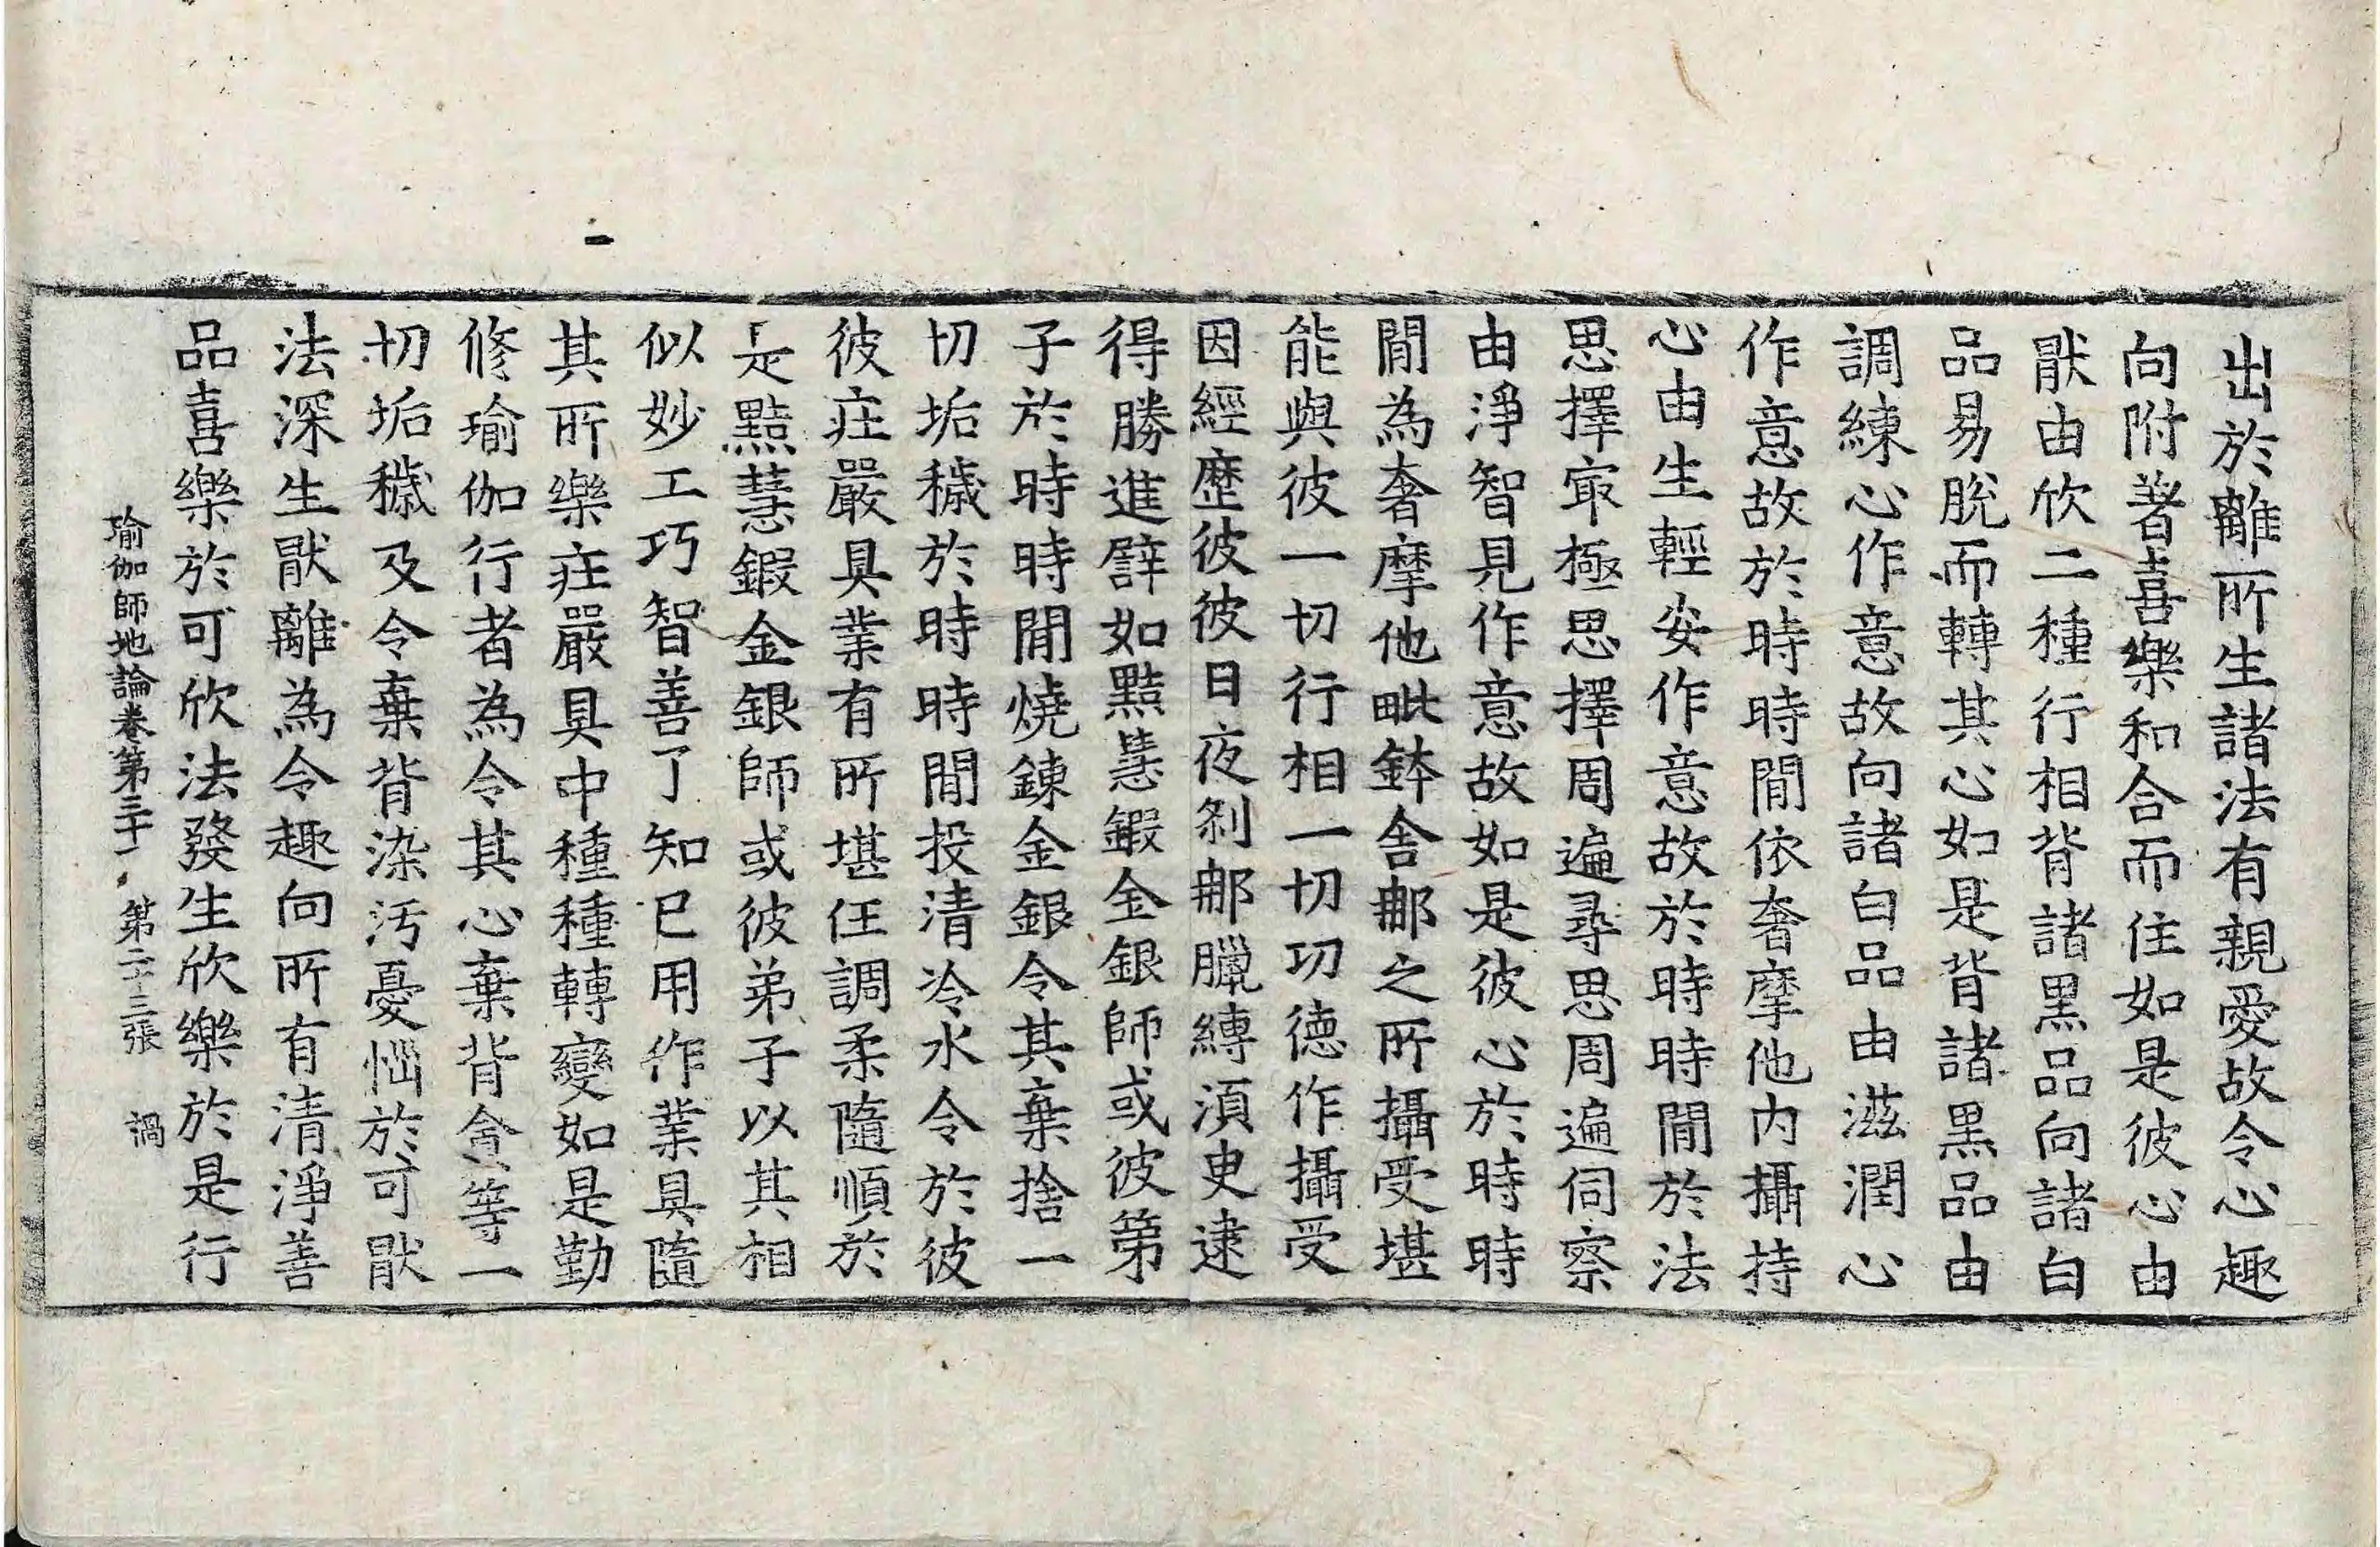 出於離所生諸法有親愛故令心趣
向附著喜樂和合而住如是彼心由
猒由欣二種行相背諸黑品向諸白
品易脫而轉其心如是背諸黑品由
調練心作意故向諸白品由滋潤心
作意故於時時閒依奢摩他內攝持
心由生輕安作意故於時時閒於法
思擇㝡極思擇周遍尋思周遍伺察
由淨智見作意故如是彼心於時時
閒為奢摩他毗鉢舍那之所攝受堪
能與彼一切行相一切功德作攝受
因經歷彼彼日夜剎那臘縛湏臾逮
得勝進譬如黠慧鍛金銀師或彼弟
子於時時閒燒鍊金銀令其棄捨一
切垢穢於時時閒投清冷水令於彼
彼莊嚴具業有所堪任調柔隨順於
是黠慧鍛金銀師或彼弟子以其相
似妙工巧智善了知已用作業具隨
其所樂莊嚴具中種種轉變如是勤
修瑜伽行者為令其心棄背貪等一
切垢穢及令棄背染汚憂惱於可猒
法深生猒離為令趣向所有清淨善
品喜樂於可欣法發生欣樂於是行
瑜伽師地論卷第三十一　第二十三張　禍